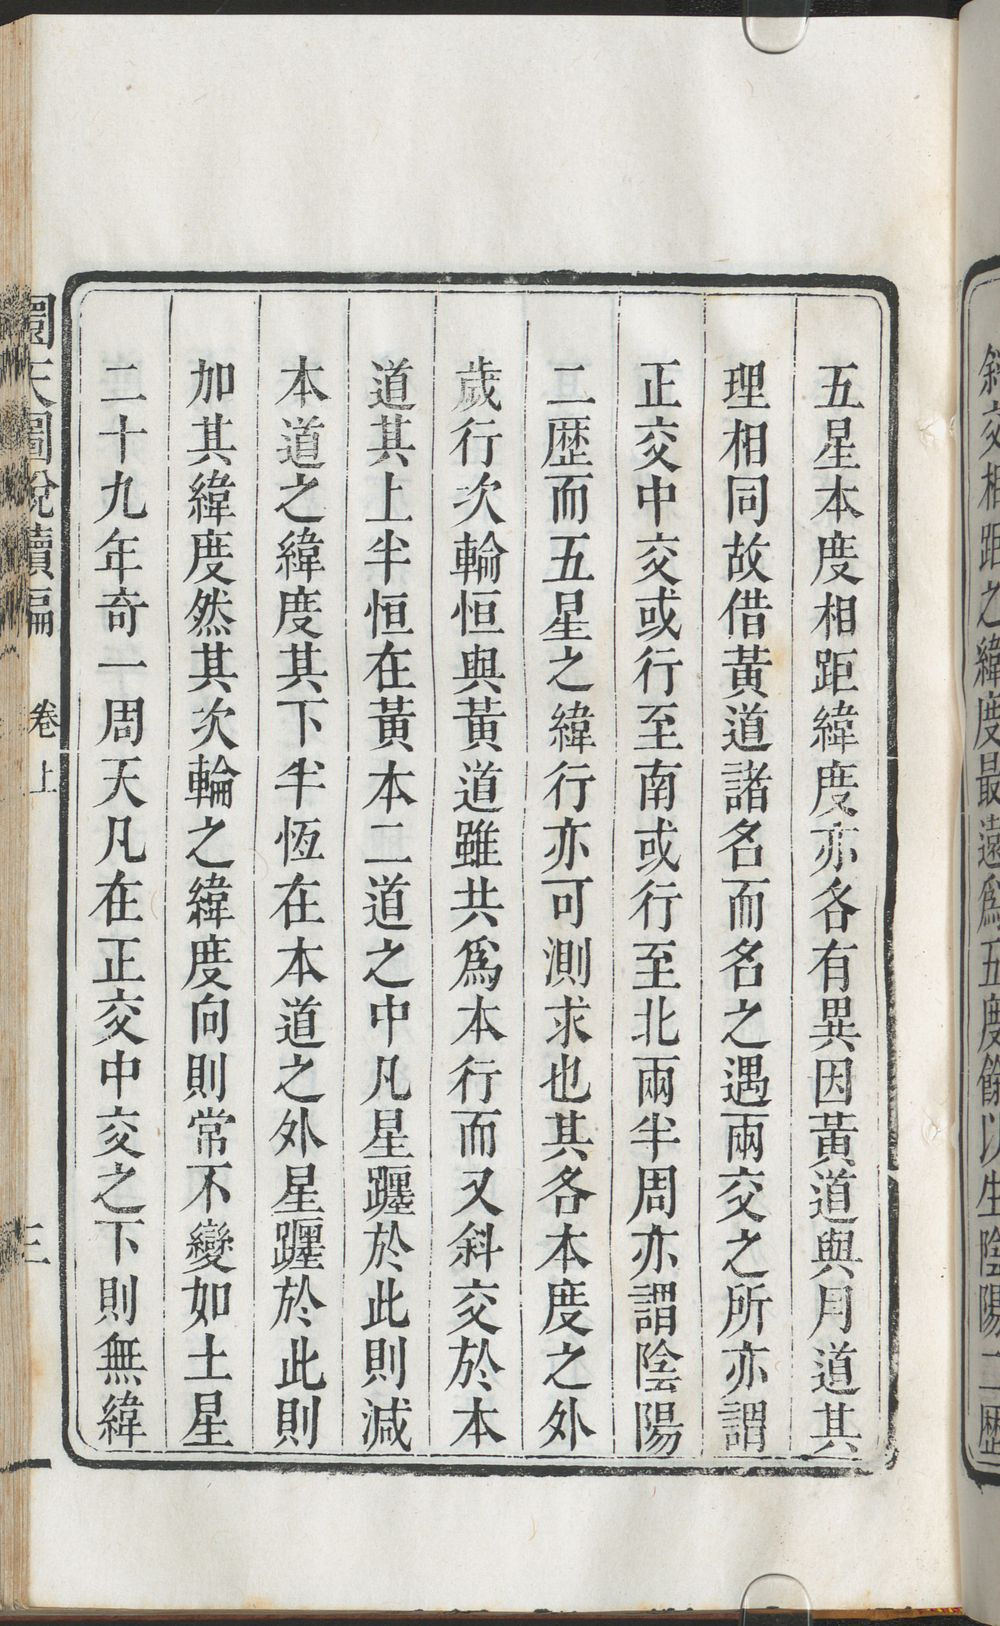 斜交相距之緯度最遠爲五度餘以生陰陽二歷
五星本度相距緯度亦各有異因黃道與月道其
理相同故借黃道諸名而名之遇兩交之所亦謂
正交中交或行至南或行至北兩半周亦謂陰陽
二歷而五星之緯行亦可測求也其各本度之外
歲行次輪恒與黃道雖共爲本行而又斜交於本
道其上半恒在黃本二道之中凡星躔於此則減
本道之緯度其下半恆在本道之外星躔於此則
加其緯度然其次輪之緯度向則常不變如土星
二十九年奇一周天凡在正交中交之下則無緯
圜天圖說續編 卷上 三